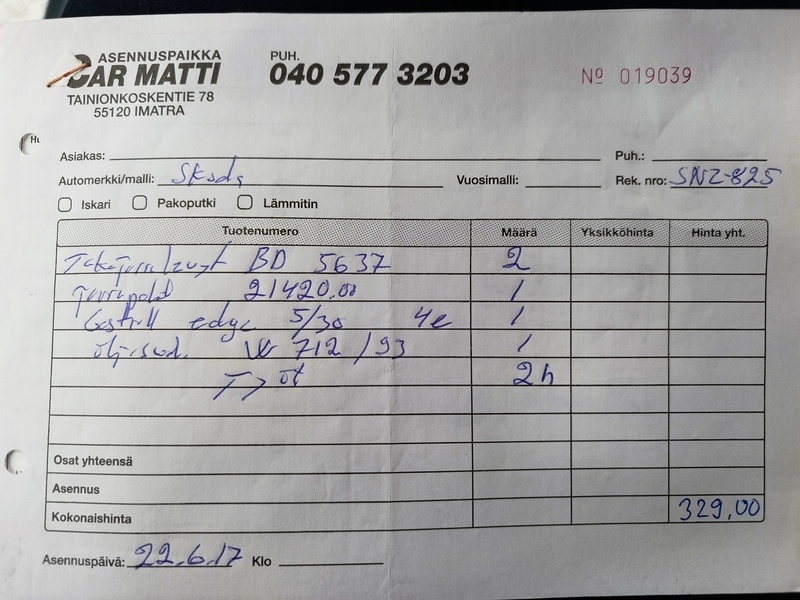 ASENNUSPAIKKA
CAR MATTI
TAINIONKOSKENTIE 78
55120 IMATRA
PUH.
040 577 3203
Nº 019039
Asiakas: Puh.:
Automerkki/malli: Skoda Vuosimalli: Rek. nro: SNZ-825
Iskari Pakoputki Lämmitin
Tuotenumero Määrä Yksikköhinta Hinta yht.
BD 5637 2
21420.00 1
edge 5/30 1
W 712/93 1
2h
Osat yhteensä
Asennus
Kokonaishinta 329,00
Asennuspäivä: 22.6.17 Klo